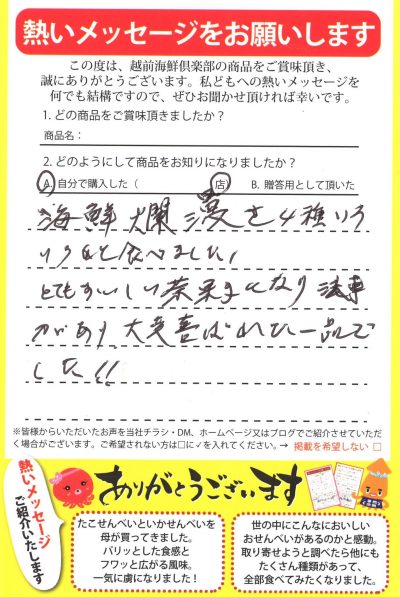 熱いメッセージをお願いします
この度は、越前海鮮倶楽部の商品をご賞味頂き、
誠にありがとうございます。私どもへの熱いメッセージを
何でも結構ですので、ぜひお聞かせ頂ければ幸いです。
1. どの商品をご賞味頂きましたか?
商品名:
2. どのようにして商品をお知りになりましたか?
A. 自分で購入した( 店) B. 贈答用として頂いた
海鮮爛漫を4種いろ
いろと食べました!
とてもおいしい
があり、大変喜ばれた一品で
した!!
※皆様からいただいたお声を当社チラシ・DM、ホームページ又はブログでご紹介させていただ
く場合がございます。ご希望されない方は□に✓を入れてください。→ 掲載を希望しない □
熱いメッセージ
ご紹介いたします
ありがとうございます
たこせんべいといかせんべいを
母が買ってきました。
パリッとした食感と
フワッと広がる風味。
一気に虜になりました!
世の中にこんなにおいしい
おせんべいがあるのかと感動。
取り寄せようと調べたら他にも
たくさん種類があって、
全部食べてみたくなりました。